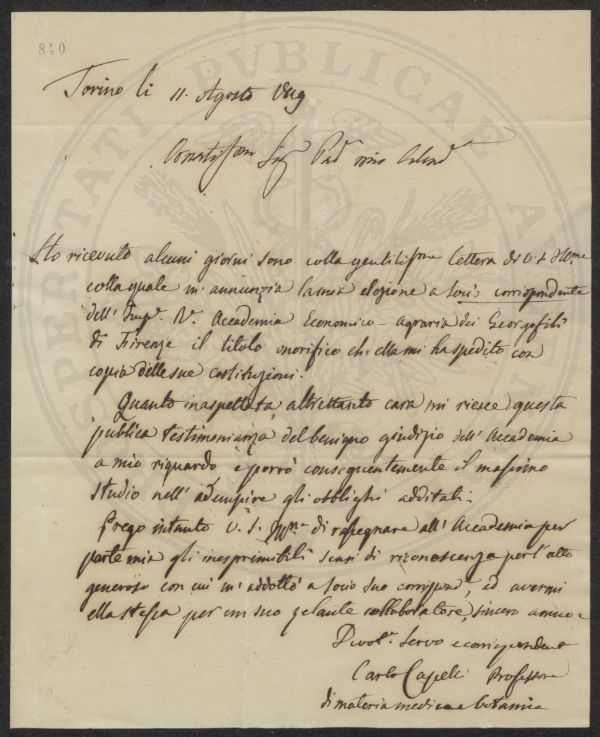 840
PROSPERITATI PUBLICAE AUGENDAE
Torino li 11. Agosto 1819
Sig.r Pad. mio
Ho ricevuto alcuni giorni sono colla gentiliss.ma lettera di V. S. Ill.ma
colla quale m'annunzia la mia elezione a socio corrispondente
dell'Imp. R. Accademia Economico-Agraria dei Georgofili
di Firenze il titolo onorifico ch'ella mi ha spedito con
copia delle sue costituzioni.
Quanto inaspettata, altrettanto cara mi riesce questa
publica testimonianza del benigno giudizio dell'Accademia
a mio riguardo e porrò conseguentemente il massimo
studio nell'adempire gli obblighi additati.
Prego intanto V. S. Ill.ma di rassegnare all'Accademia per
parte mia gli inesprimibili sensi di riconoscenza per l'atto
generoso con cui m'addottò a socio suo corrispond.e, ed avermi
ella stessa per un suo zelante collaboratore, sincero amico e
Divot. Servo e corrispondente
Carlo Capelli Professore
di materia medica e botanica